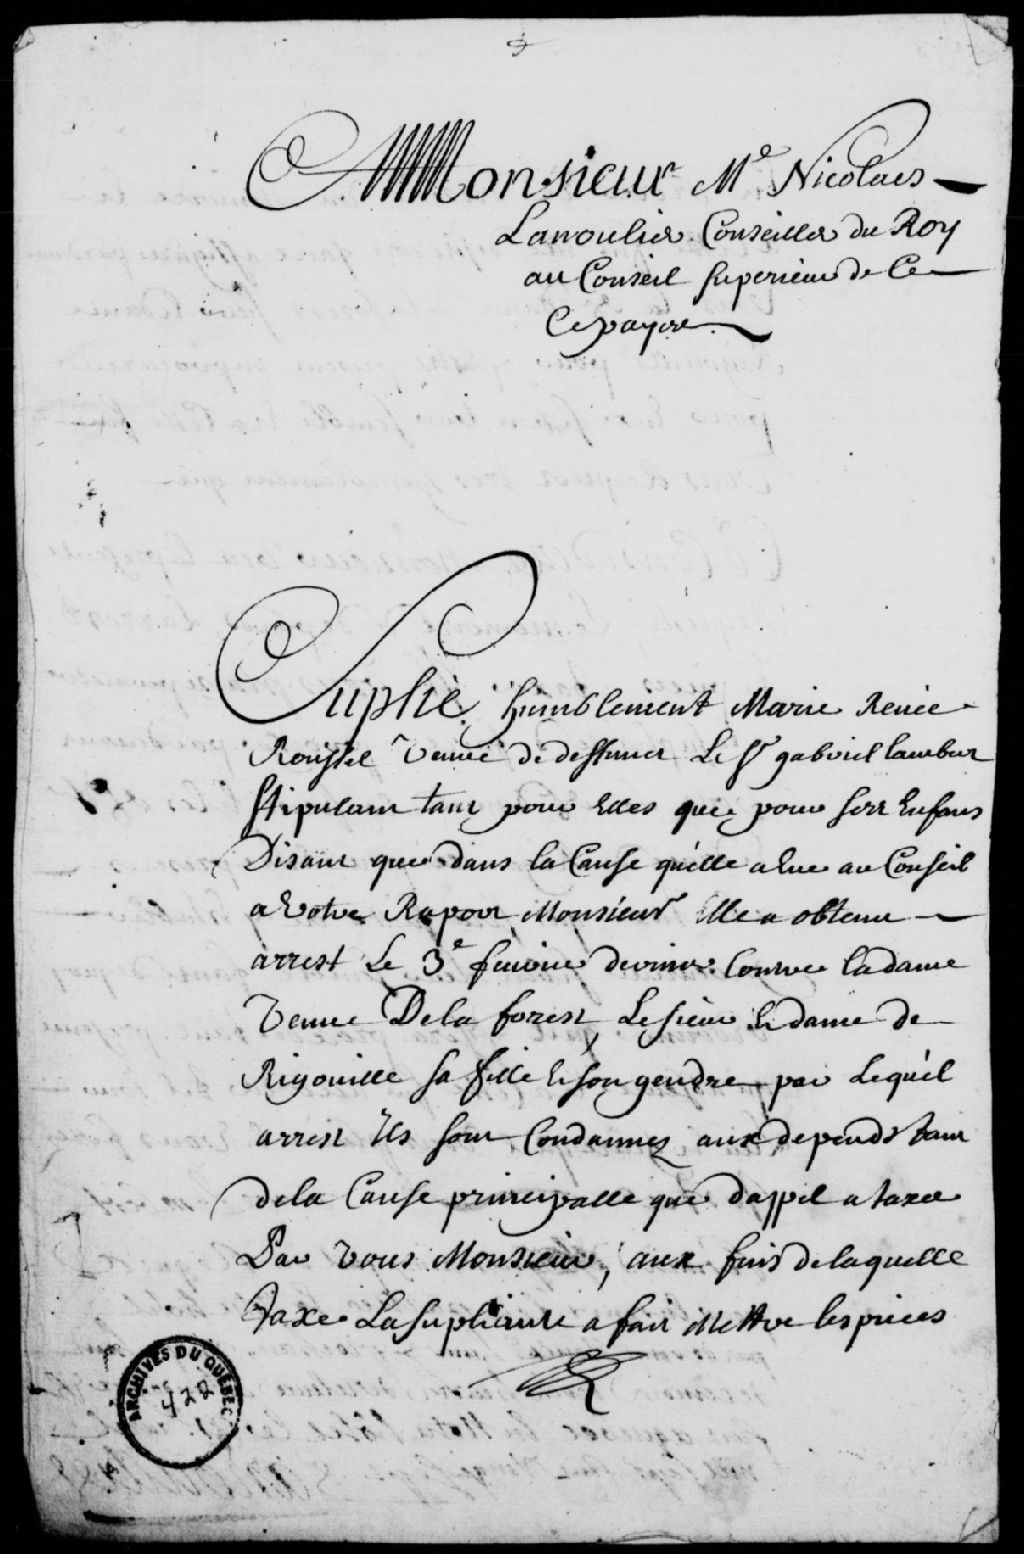 A Monsieur Me Nicolaes
Lanoulier Conseiller du Roy
au Conseil superieur de Ce
Ce payere
Suplie humblement Marie Reneé
Roussel veuve de deffunct Le Sr gabriel lambert
stipulant tant pour Elles que pour serr Enfans
Disant que dans la Cause quélle a Eue au Conseil
a Votre Raport Monsieur Elle a obtenu
arrest Le 3e fevrier dernier Contre la dame
Veuve De la forest, Le sieur Et dame de
Rigouille sa fille Et son gendre par Lequél
arrest Ils sont Condannez aux depends tant
dela Cause principalle que dappel a taxer
Par Vous Monsieur, aux fins de laquelle
Taxe La supliante a fait Mettre les pieces
ARCHIVES DU QUÉBEC
422